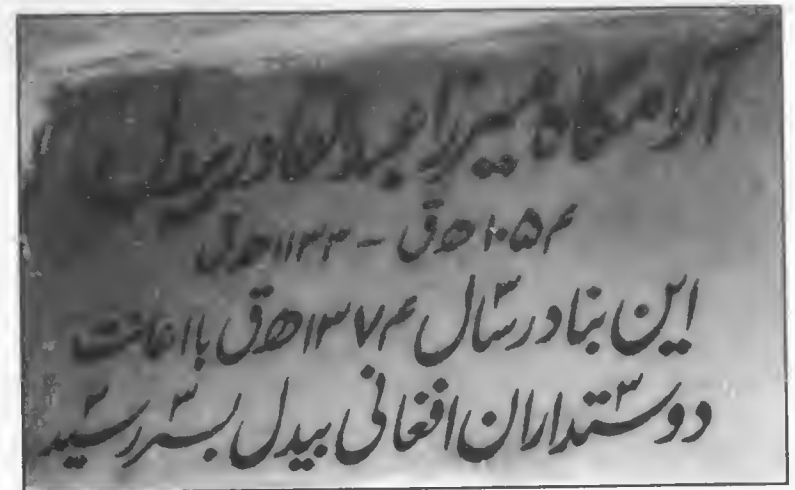 آرامگاه میرزا عبدالقادر بیدل
۱۰۵۴ھ ق - ۱۱۳۳ھ ق
این بنا در سال ۱۳۷۴ھ ق با اعانت
دوستداران افغانی بیدل بسر رسید